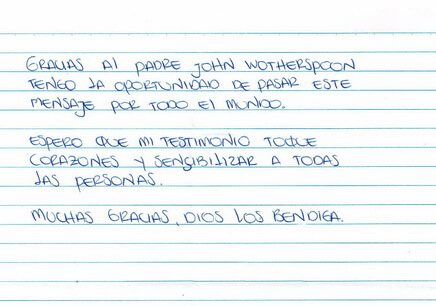 GRACIAS Al PADRE JOHN WOTHERSPOON
TENGO LA OPORTUNIDAD DE PASAR ESTE
MENSAJE POR TODO El MUNDO.
ESPERO QUE MI TESTIMONIO TOQUE
CORAZONES Y SENSIBILIZAR A TODAS
LAS PERSONAS.
MUCHAS GRACIAS, DIOS LOS BENDIGA.